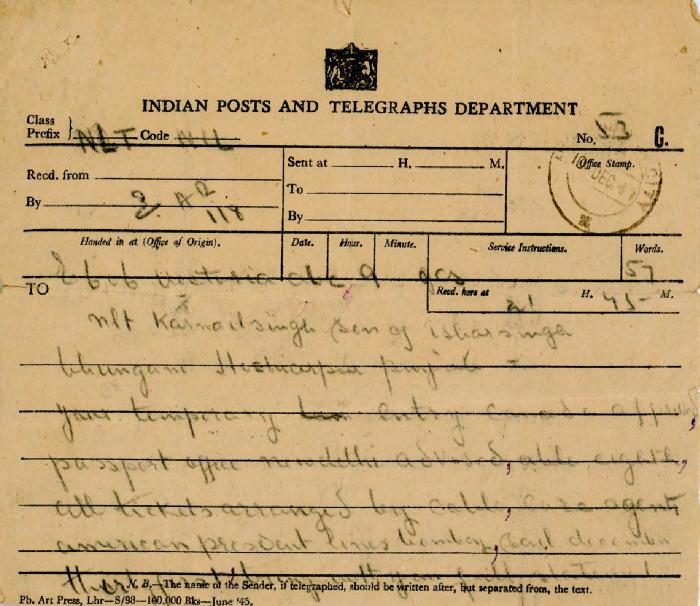 INDIAN POSTS AND TELEGRAPHS DEPARTMENT
Class
Prefix } NLT Code NIL No. 53 C.
Recd. from
By
Sent at H. M.
To
By
Office Stamp.
10 DEC. 47
Handed in at (Office of Origin). Date. Hour. Minute. Service Instructions. Words.
victoria 9 57
TO Recd. here at 21 H. 45 M.
nlt Karnailsingh son of isharsingh
bhungarni
your temporary entry canada
passport office newdelhi advised, able eighth,
all tickets arranged by cable, care agents
american president lines bombay, sail december
N. B.—The name of the Sender, if telegraphed, should be written after, but separated from, the text.
Pb. Art Press, Lhr—S/98—160.000 Bks—June '45.